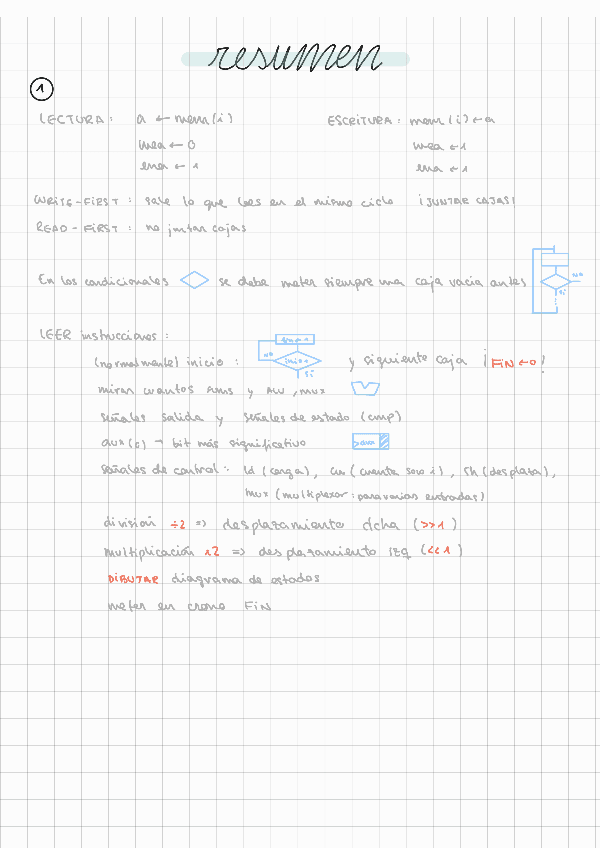 resumen
1
LECTURA: a ← mem(i) ESCRITURA: mem(i) ← a
wea ← 0 wea ← 1
ena ← 1 ena ← 1
WRITE-FIRST: sale lo que lees en el mismo ciclo ¡JUNTAR CAJAS!
READ-FIRST: no juntar cajas
En los condicionales se debe meter siempre una caja vacia antes
NO
SI
LEER instrucciones:
(normalmente) inicio: y siguiente caja ¡FIN←0!
NO inicio
SI
mirar cuantos sums y alu, mux
señales salida y señales de estado (cmp)
aux(0) → bit más significativo
señales de control: ld (carga), cu (cuenta solo i), sh (desplaza),
mux (multiplexor: para varias entradas)
división ÷2 => desplazamiento dcha (>>1)
multiplicación x2 => desplazamiento izq (<<1)
DIBUJAR diagrama de estados
meter en crono FIN